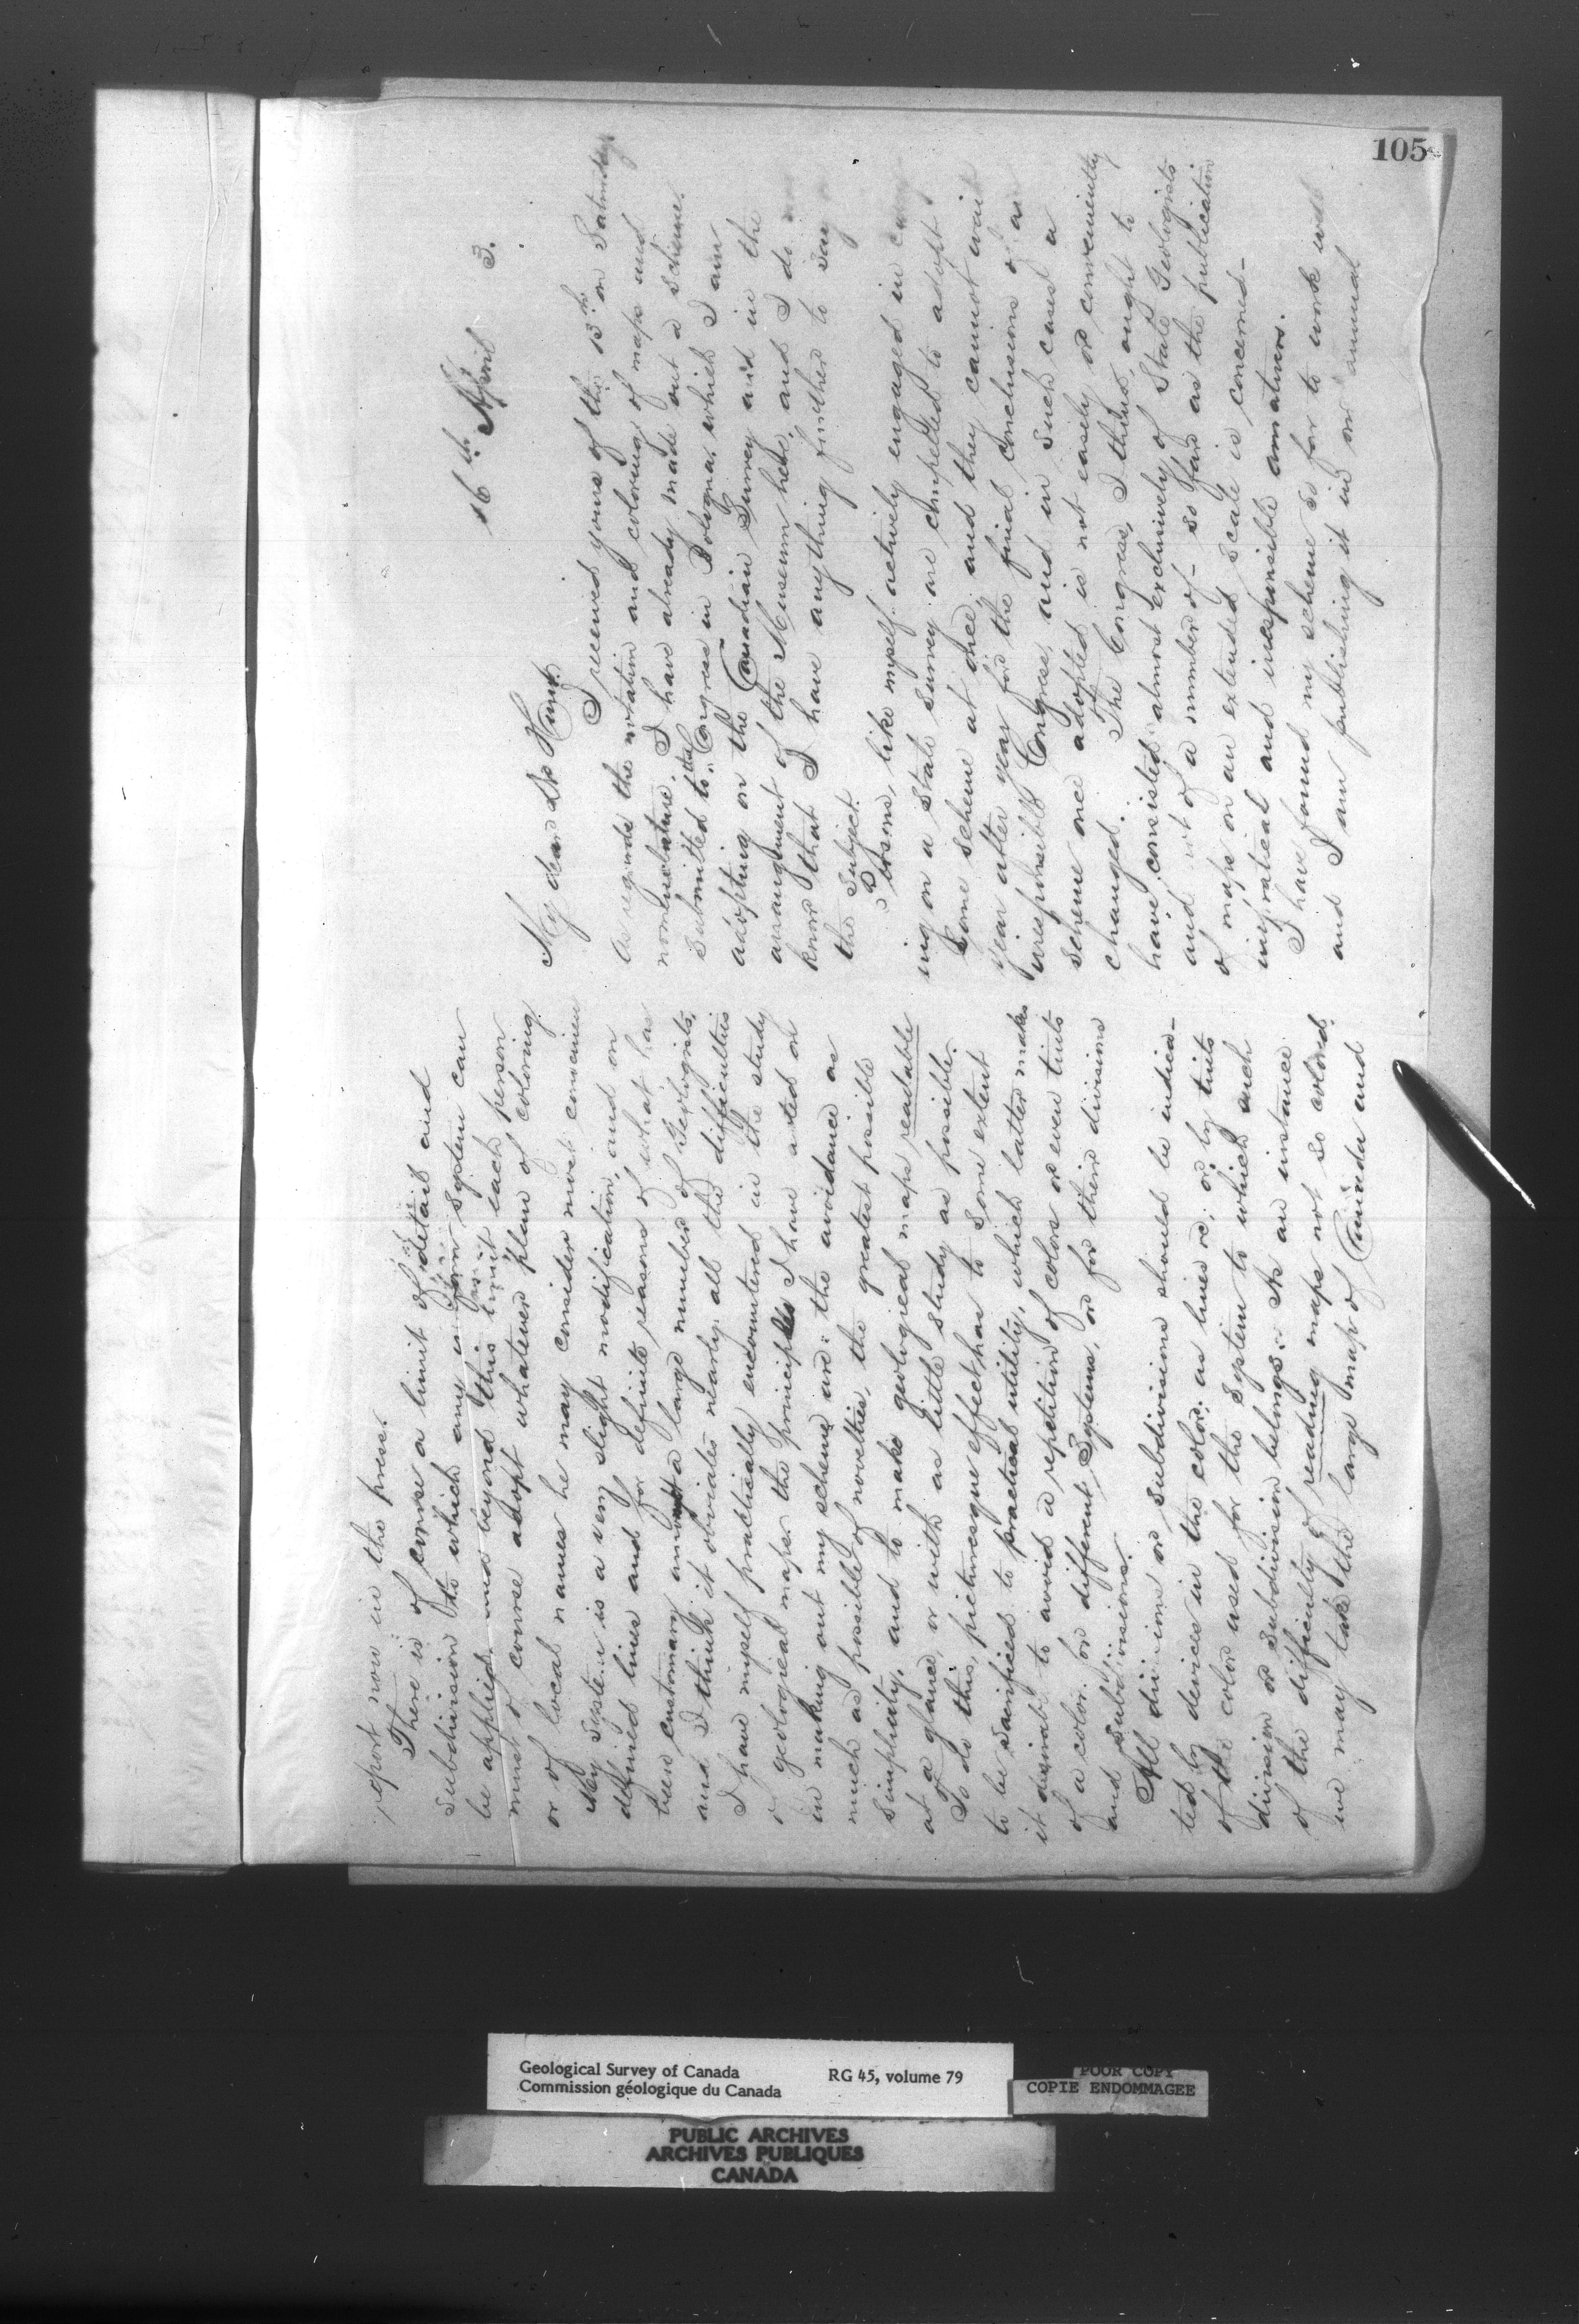 105
16th April 3.
My dear Dr Hunt
I received yours of the 13th on Saturday
As regards the notation and coloring of maps and
nomenclature. I have already made out a scheme.
submitted to the Congress in Bologna, which I am
adopting on the Canadian Survey and in the
arrangement of the Museum here, and I do
know that I have anything further to say
the subject.
Persons, like myself actively engaged in
ing on a State Survey are compelled to adopt
some scheme at once, and they cannot wait
year after year for the final conclusions of an
irresponsible Congress, and in such cases a
scheme once adopted is not easily or conveniently
changed. The Congress, I think, ought to
have consisted almost exclusively of State Geologists
and not of a number of - so far as the publication
of maps on an extended scale is concerned -
impractical and irresponsible amateurs.
I have found my scheme so far to work well
and I am publishing it in our annual
report now in the press.
There is of course a limit of detail and
subdivision to which any uniform system can
be applied and beyond this limit each person
must of course adopt whatever plan of coloring
or of local names he may consider most convenient
My system is a very slight modification, and on
defined lines and for definite reasons of what has
been customary amongst a large number of Geologists,
and I think it obviates nearly all the difficulties
I have myself practically encountered in the study
of geological maps. the principles I have acted on
in making out my scheme are: the avoidance as
much as possible of novelties, the greatest possible
simplicity, and to make geological maps readable
at a glance, or with as little study as possible.
To do this, picturesque effect has to some extent
to be sacrificed to practical utility, which latter makes
it desirable to avoid a repetition of colors or even tints
of a color for different Systems, or for their divisions
and subdivisions.
All divisions or subdivisions should be indica-
ted by devices in the color: as lines &c; or by tints
of the color used for the System to which such
division or subdivision belongs. As an instance
of the difficulty of reading maps not so colored
we may take the large map of Canada and
Geological Survey of Canada
Commission géologique du Canada
RG 45, volume 79
POOR COPY
COPIE ENDOMMAGEE
PUBLIC ARCHIVES
ARCHIVES PUBLIQUES
CANADA